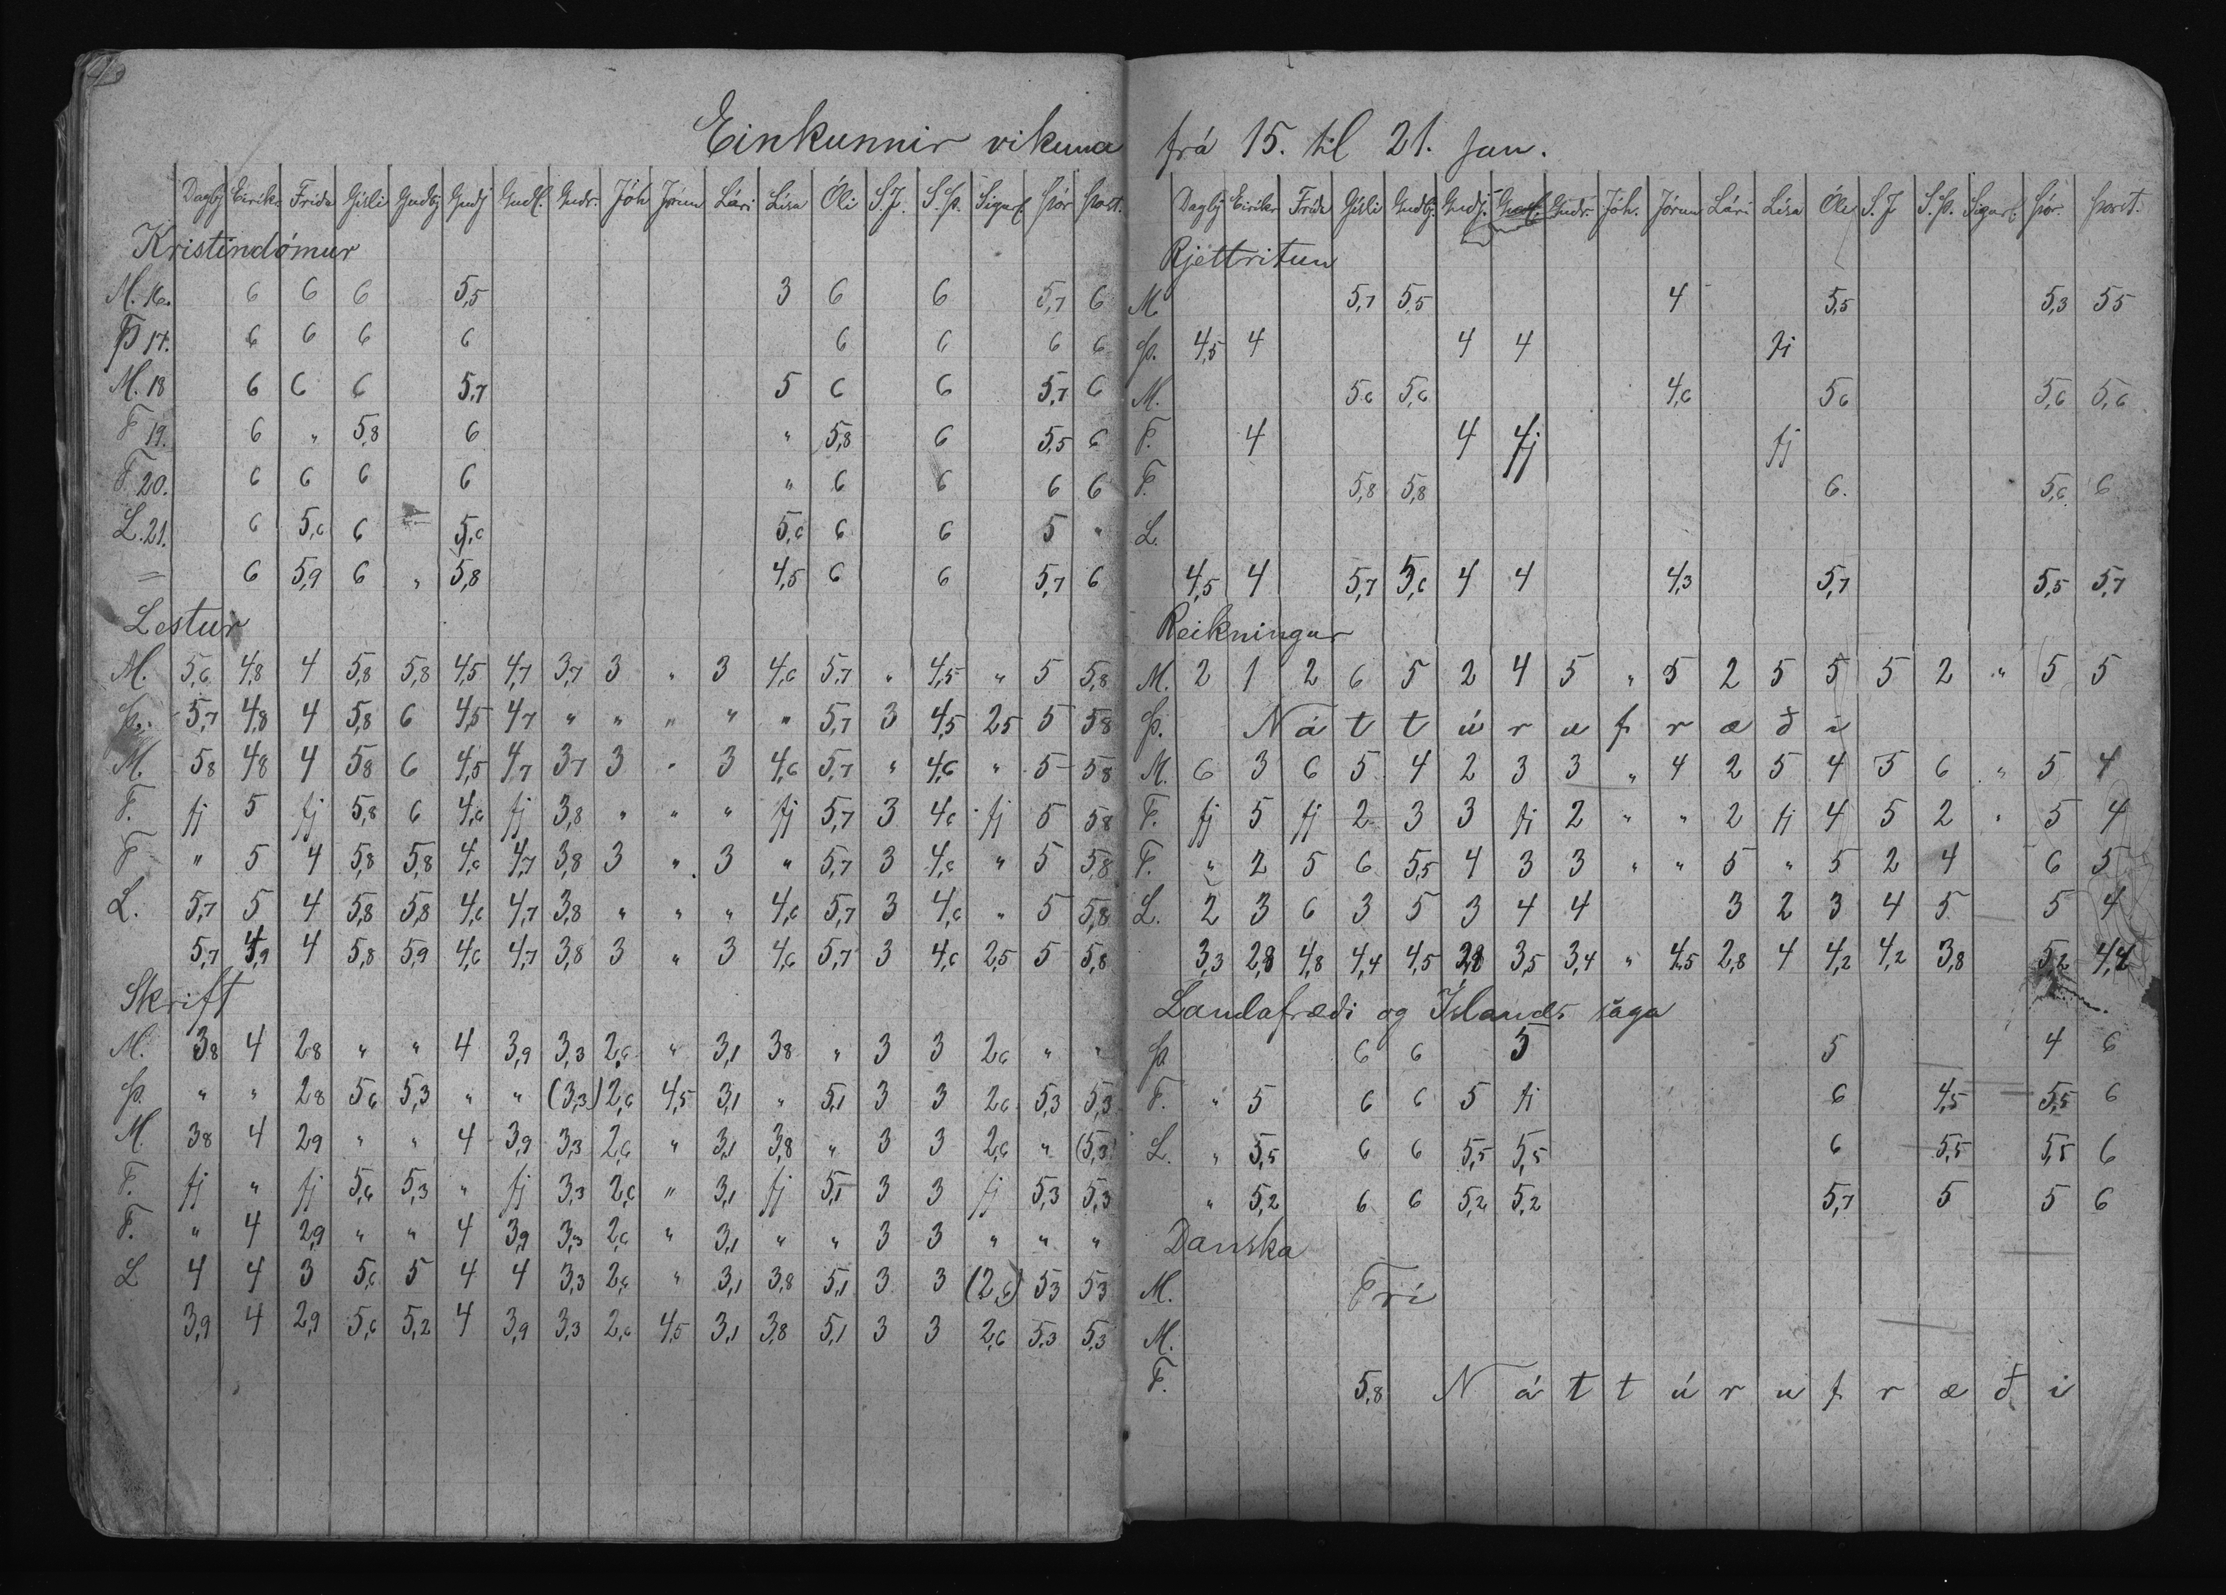 Einkunnir vikuna
Dagbj Eirikr Frida Gísli Gudbj Gudj Gudl. Gudr. Jóh Jórun Lári Lísa Óli S.J. S.Þ. Sigurl. Þór Þorst.
Kristindómur
M. 16. 6 6 6 5,5 3 6 6 5,7 6
Þ 17. 6 6 6 6 6 6 6 6
M. 18 6 6 6 5,7 5 6 6 5,7 6
F 19. 6 " 5,8 6 " 5,8 6 5,5 6
F. 20. 6 6 6 6 " 6 6 6 6
L. 21. 6 5,6 6 5,6 5,6 6 6 5 "
= 6 5,9 6 " 5,8 4,5 6 6 5,7 6
Lestur
M. 5,6 4,8 4 5,8 5,8 4,5 4,7 3,7 3 " 3 4,6 5,7 " 4,5 " 5 5,8
Þ. 5,7 4,8 4 5,8 6 4,5 4,7 " " " " " 5,7 3 4,5 25 5 58
M. 58 48 4 58 6 4,5 4,7 37 3 " 3 4,6 5,7 " 4,6 " 5 58
F. fj 5 fj 5,8 6 4,6 fj 3,8 " " " fj 5,7 3 4,6 fj 5 58
F " 5 4 5,8 5,8 4,6 4,7 3,8 3 " 3 " 5,7 3 4,6 " 5 5,8
L. 5,7 5 4 5,8 5,8 4,6 4,7 3,8 " " " 4,6 5,7 3 4,6 " 5 5,8
5,7 4,9 4 5,8 5,9 4,6 4,7 3,8 3 " 3 4,6 5,7 3 4,6 2,5 5 5,8
Skrift
M. 38 4 28 " " 4 3,9 3,3 2,6 " 3,1 38 " 3 3 26 " "
Þ. " " 28 56 5,3 " " (3,3) 2,6 4,5 3,1 " 5,1 3 3 26 5,3 5,3
M. 38 4 29 " " 4 3,9 3,3 2,6 " 3,1 3,8 " 3 3 2,6 " (5,3)
F. fj " fj 5,6 5,3 " fj 3,3 2,6 " 3,1 fj 5,1 3 3 fj 5,3 5,3
F. " 4 2,9 " " 4 3,9 3,3 2,6 " 3,1 " " 3 3 " " "
L 4 4 3 5,6 5 4 4 3,3 2,6 " 3,1 3,8 5,1 3 3 (2,6) 53 53
3,9 4 2,9 5,6 5,2 4 3,9 3,3 2,6 4,5 3,1 3,8 5,1 3 3 2,6 5,3 5,3
frá 15. til 21. Jan.
Dagbj Eirikr Frida Gísli Gudbj. Gudj. Gudl. Gudr. Jóh. Jórun Lári Lísa Óli S.J S.Þ. Sigurl. Þór. Þorst.
Rjettritun
M. 5,7 5,5 4 5,5 5,3 55
Þ. 4,5 4 4 4 fj
M. 5,6 5,6 4,6 56 5,6 5,6
F. 4 4 fj fj
F. 5,8 5,8 6. 5,6 6
L.
4,5 4 5,7 5,6 4 4 4,3 5,7 5,5 5,7
Reikningur
M. 2 1 2 6 5 2 4 5 " 5 2 5 5 5 2 " 5 5
Þ. Náttúrufræði
M. 6 3 6 5 4 2 3 3 " 4 2 5 4 5 6 " 5 4
F. fj 5 fj 2 3 3 fj 2 " " 2 fj 4 5 2 " 5 4
F. " 2 5 6 5,5 4 3 3 " " 5 " 5 2 4 6 5
L. 2 3 6 3 5 3 4 4 3 2 3 4 5 5 4
3,3 2,8 4,8 4,4 4,5 2,8 3,5 3,4 " 4,5 2,8 4 4,2 4,2 3,8 5,2 4,4
Landafræði og Íslands saga
Þ 6 6 5 5 4 6
F. " 5 6 6 5 fj 6 4,5 5,5 6
L. " 5,5 6 6 5,5 5,5 6 5,5 5,5 6
" 5,2 6 6 5,2 5,2 5,7 5 5 6
Danska
M. Frí
M.
F. 5,8 Náttúrufræði